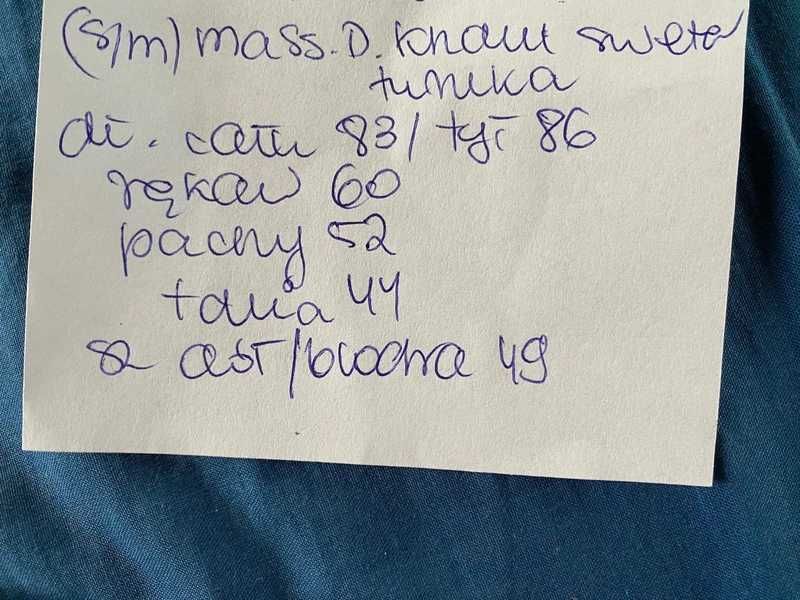 (S/m) mass. D. Knau sweter
tunika
dł. cału 83/ tył 86
rękaw 60
pachy 52
talia 44
sz dół/biodra 49